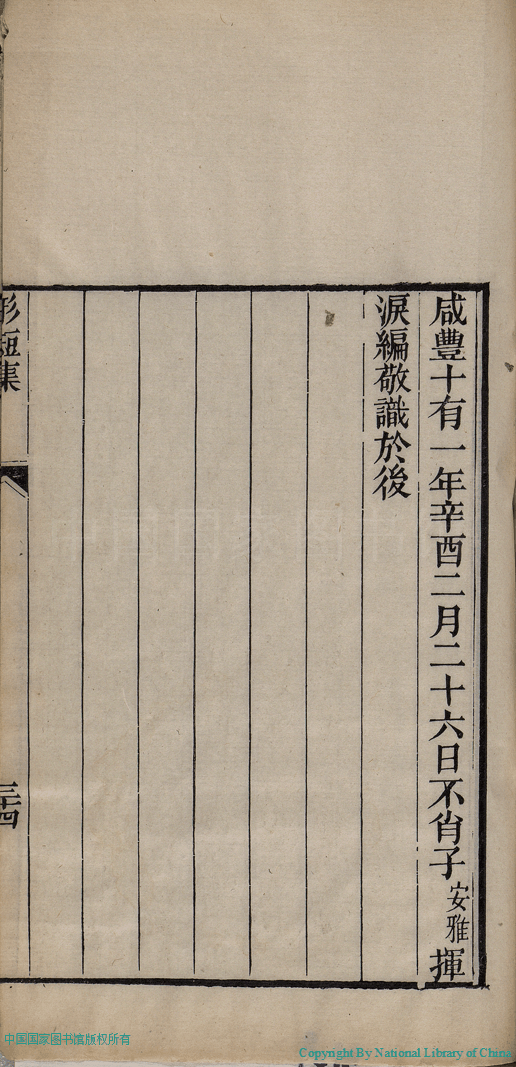 咸豐十有一年辛酉二月二十六日不肖子安雅揮
淚編敬識於後
短集
三十四
中国国家图书馆版权所有
Copyright By National Library of China